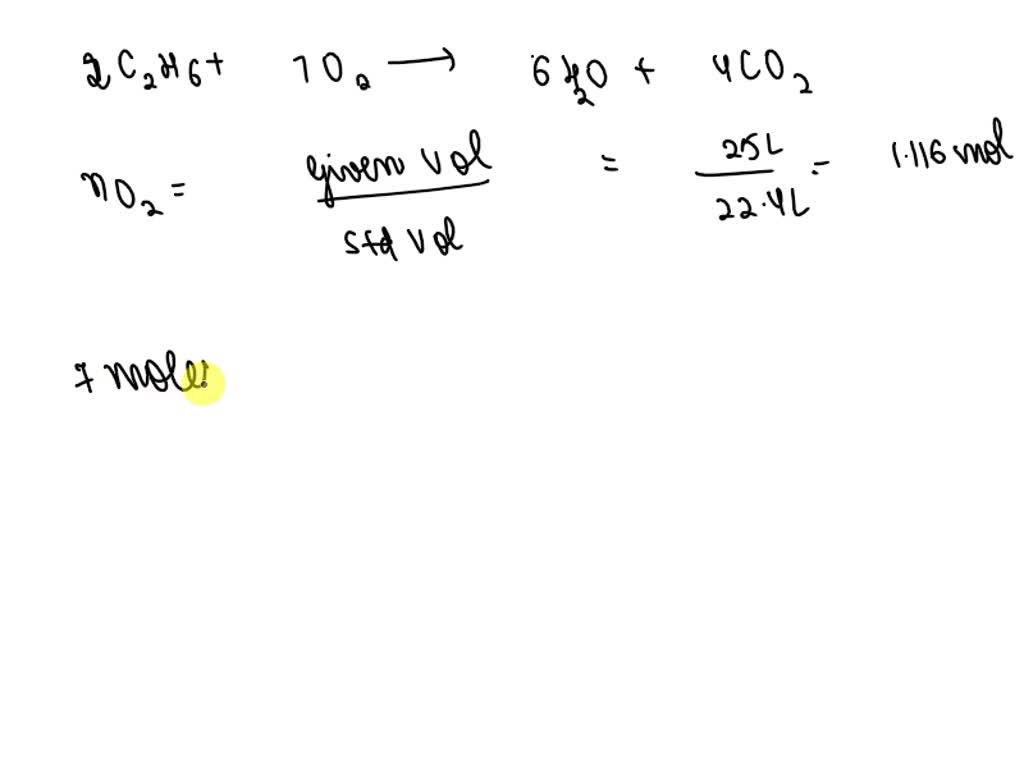 2C₂H₆ + 7O₂ → 6H₂O + 4CO₂
nO₂ = given vol / std vol = 25L / 22.4L = 1.116 mol
7 moles